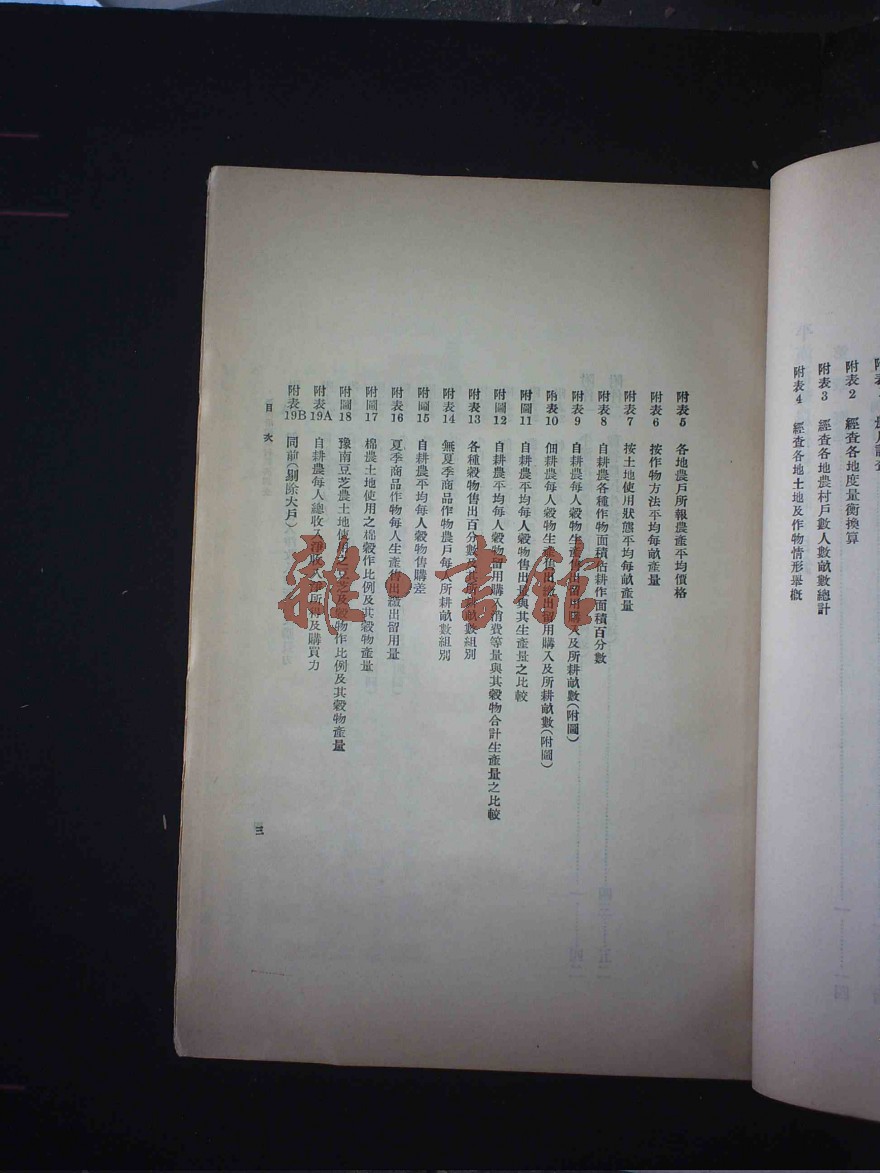 附表2 經查各地度量衡換算
附表3 經查各地農村戶數人數畝數總計
附表4 經查各地土地及作物情形舉概
附表5 各地農戶所報農產平均價格
附表6 按作物方法平均每畝產量
附表7 按土地使用狀態平均每畝產量
附表8 自耕農各種作物面積佔耕作面積百分數
附表9 自耕農每人穀物生產售出留用購入及所耕畝數(附圖)
附表10 佃耕農每人穀物生產售出繳出留用購入及所耕畝數(附圖)
附圖11 自耕農平均每人穀物售出量與其生產量之比較
附圖12 自耕農平均每人穀物留用購入消費等量與其穀物合計生產量之比較
附表13 各種穀物售出百分數及其所耕畝數組別
附表14 無夏季商品作物農戶每人所耕畝數組別
附圖15 自耕農平均每人穀物售購差
附表16 夏季商品作物每人生產售出繳出留用量
附圖17 棉農土地使用之棉穀作比例及其穀物產量
附圖18 豫南豆芝農土地使用之豆芝及穀物作比例及其穀物產量
附表19A 自耕農每人總收入淨收入淨所得及購買力
附表19B 同前(剔除大戶)
目次
三
雜·書館